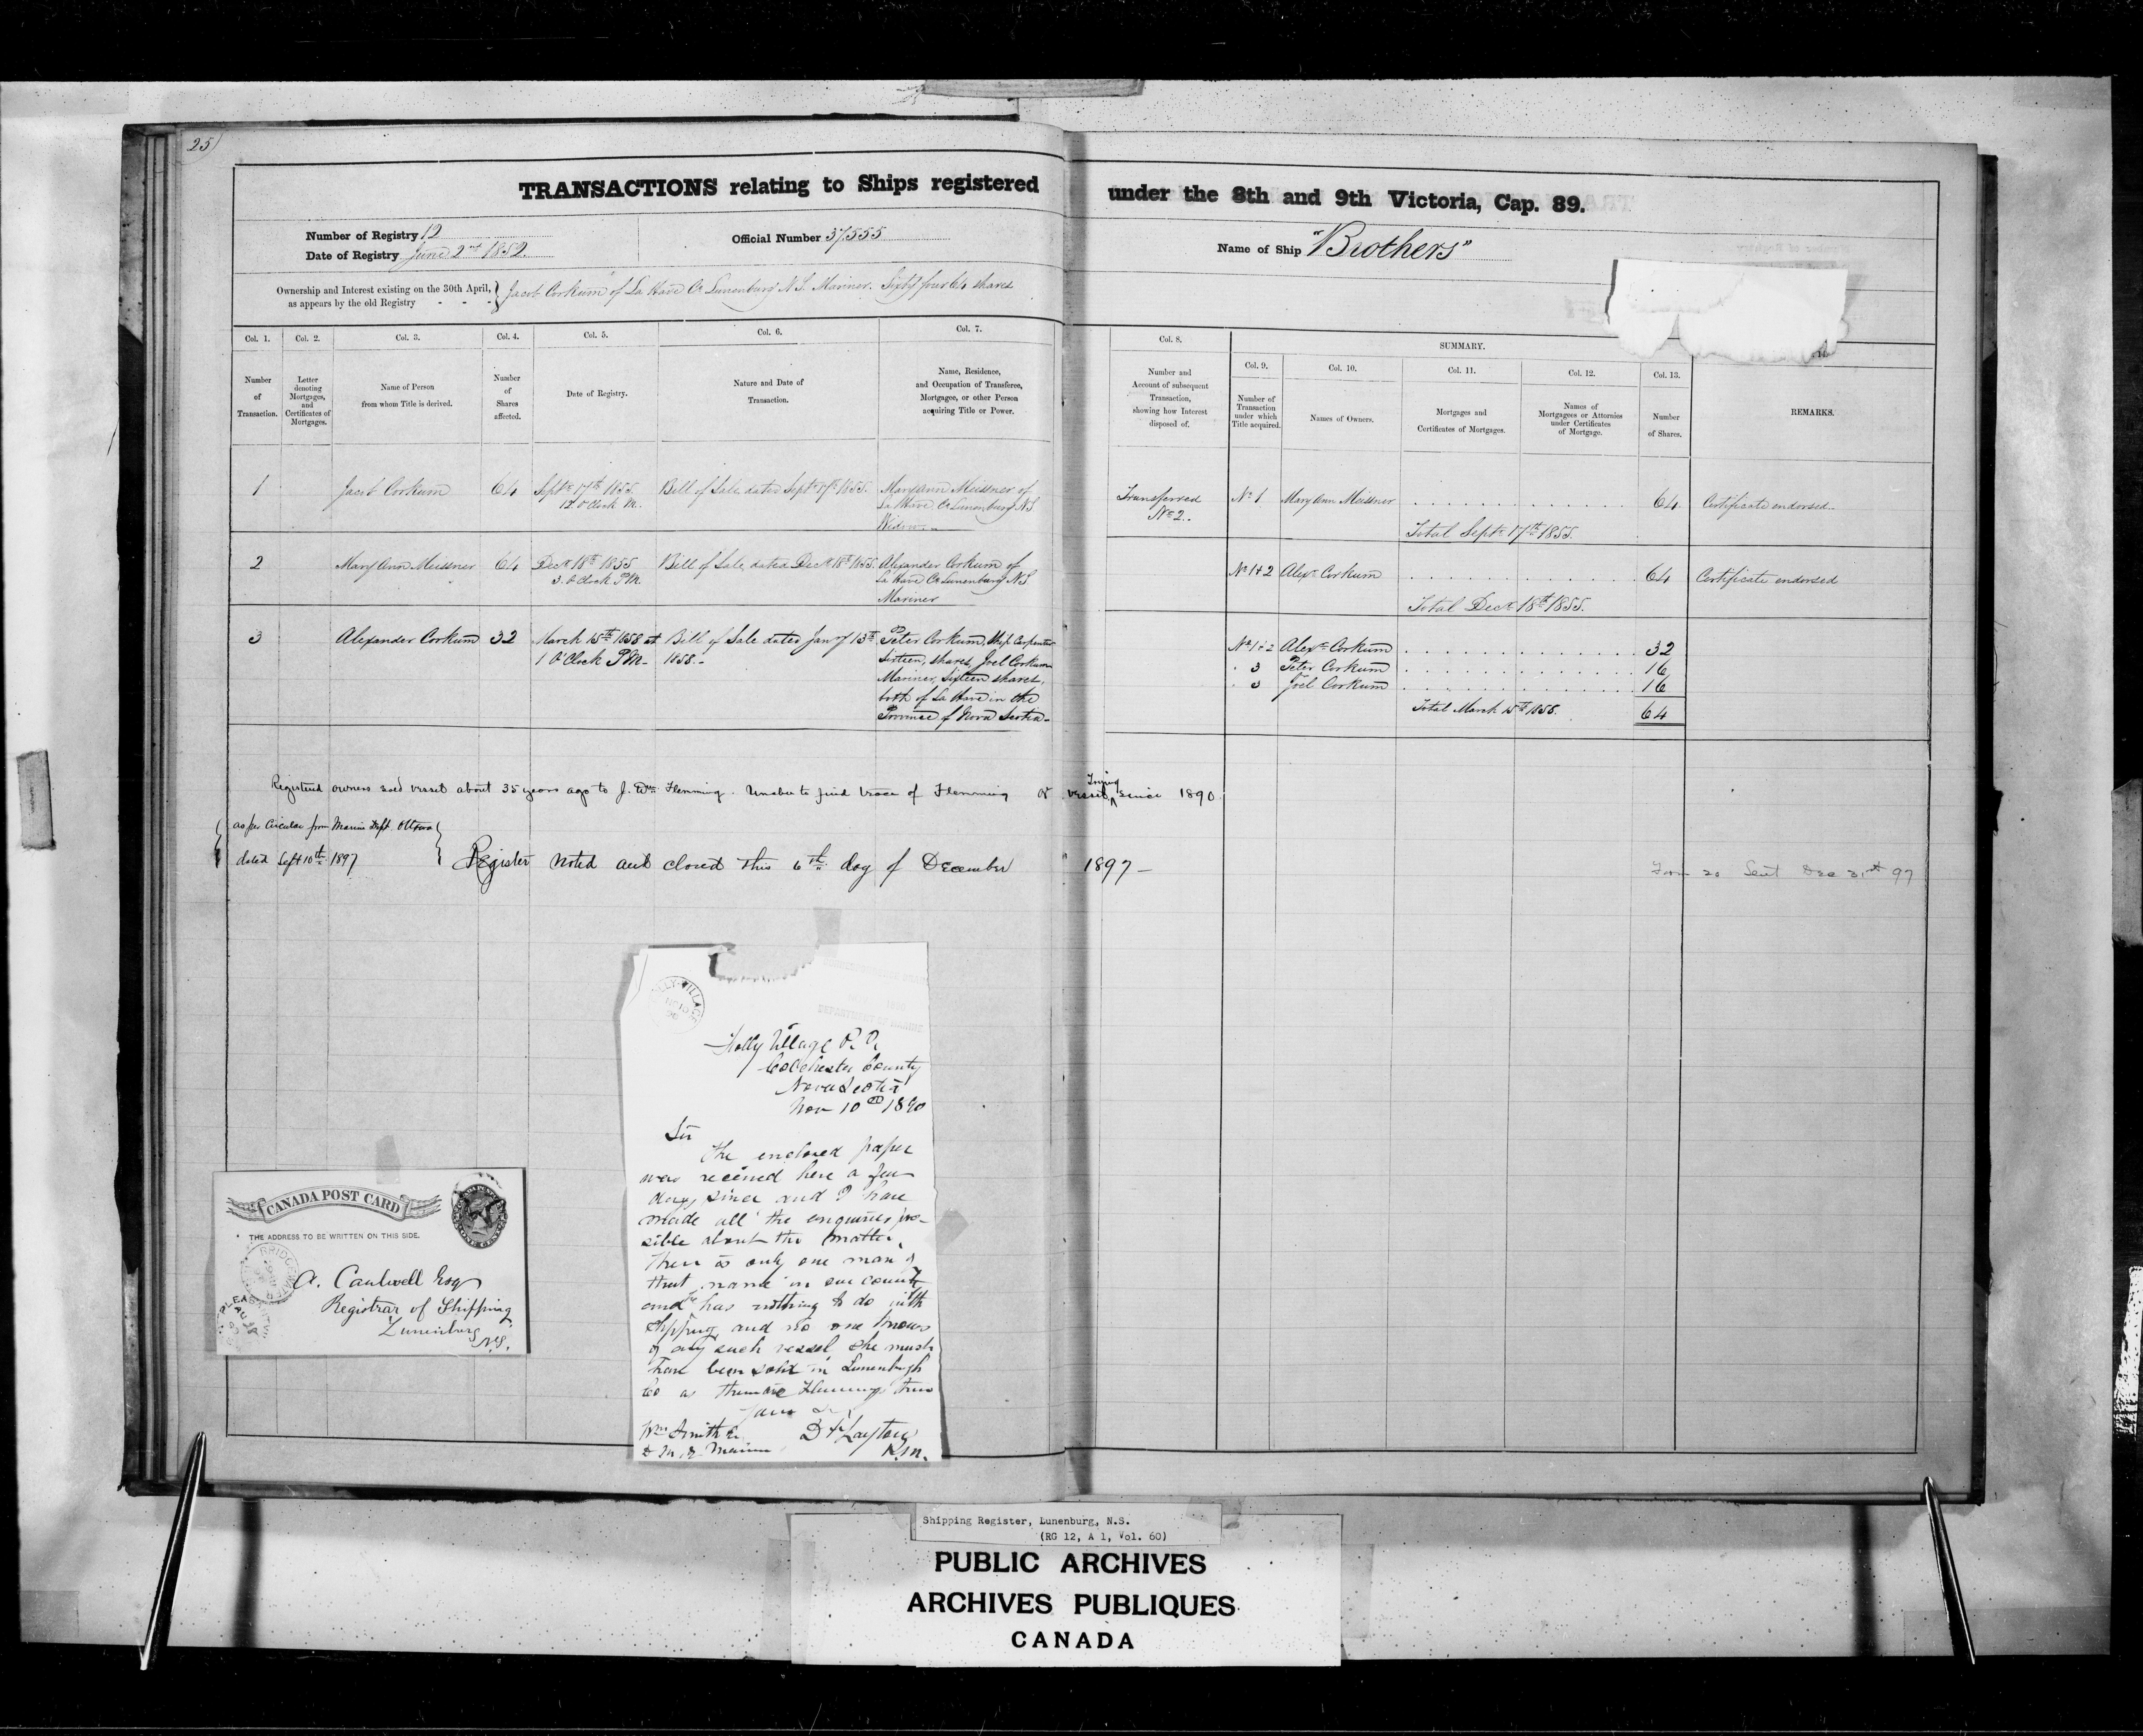 25)
TRANSACTIONS relating to Ships registered under the 8th and 9th Victoria, Cap. 89.
Number of Registry 12
Date of Registry June 2nd 1852.
Official Number 37555
Name of Ship "Brothers"
Ownership and Interest existing on the 30th April, as appears by the old Registry - - - } Jacob Corkum of La Have Co Lunenburg N.S. Mariner. Sixty four 64 shares
Col. 1. Col. 2. Col. 3. Col. 4. Col. 5. Col. 6. Col. 7. Col. 8.
SUMMARY.
Col. 9. Col. 10. Col. 11. Col. 12. Col. 13.
Number of Transaction.
Letter denoting Mortgages, and Certificates of Mortgages.
Name of Person from whom Title is derived.
Number of Shares affected.
Date of Registry.
Nature and Date of Transaction.
Name, Residence, and Occupation of Transferee, Mortgagee, or other Person acquiring Title or Power.
Number and Account of subsequent Transaction, showing how Interest disposed of.
Number of Transaction under which Title acquired.
Names of Owners.
Mortgages and Certificates of Mortgages.
Names of Mortgagees or Attornies under Certificates of Mortgage.
Number of Shares.
REMARKS.
1 Jacob Corkum 64 Septr 17th 1855 12 o'Clock M. Bill of Sale dated Septr 17th 1855. Maryann Meissner of
La Have Co Lunenburg N.S.
Widow
Transferred
No 2.
No 1 Mary Ann Meissner 64 Certificate endorsed
Total Septr 17th 1855.
2 Mary Ann Meissner 64 Decr 18th 1855 3. O'Clock P.M. Bill of Sale dated Decr 18th 1855. Alexander Corkum of
La Have Co Lunenburg N.S.
Mariner
No 1+2 Alexr Corkum 64 Certificate endorsed
Total Decr 18th 1855.
3 Alexander Corkum 32 March 15th 1858 at 1 O'Clock P.M. Bill of Sale dated Jany 13th 1858. Peter Corkum, Ship Carpenter
Sixteen, shares, Joel Corkum
Mariner, sixteen shares,
both of La Have in the
Province of Nova Scotia
No 1+2 Alexr Corkum 32
" 3 Peter Corkum 16
" 3 Joel Corkum 16
Total March 15th 1858. 64
Registered owners sold vessel about 35 years ago to J. Wm Flemming. Unable to find trace of Flemming or vessel, since 1890
Inquiry
{ as per Circular from Marine Dept. Ottawa
dated Sept 10th 1897 }
Register noted and closed this 6th day of December 1897 —
Form 20 Sent Dec 31st 97
Folly Village P. O.
Colchester County
Nova Scotia
Nov 10th 1890
Sir
The enclosed paper
was received here a few
days since and I have
made all the enquiries pos-
sible about the matter,
there is only one man of
that name in our county
and he has nothing to do with
shipping and no one knows
of any such vessel she must
have been sold in Lunenburgh
Co as there are Flemmings there
Yours &c
Layton
Wm Smith
Marine
CANADA POST CARD
THE ADDRESS TO BE WRITTEN ON THIS SIDE.
BRIDGEWATER
A. Caulwell Esq
Registrar of Shipping
Lunenburg
N.S.
Shipping Register, Lunenburg, N.S.
(RG 12, A 1, Vol. 60)
PUBLIC ARCHIVES
ARCHIVES PUBLIQUES
CANADA